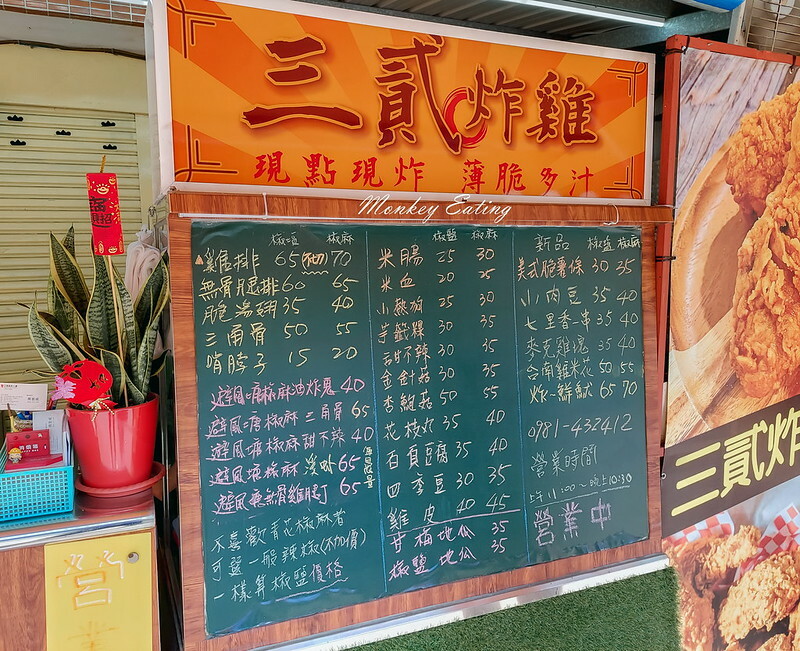 三貳炸雞
現點現炸 薄脆多汁
Monkey Eating
椒鹽 椒麻
雞排 65 70
無骨腿排 60 65
脆湯翅 35 40
三角骨 50 55
啃脖子 15 20
避風塘椒麻油炸鬼 40
避風塘椒麻三角骨 65
避風塘椒麻甜不辣 40
避風塘椒麻 65
避風塘無骨雞腿丁 65
每日限量
不喜歡青花椒麻者
可選一般辣椒(不加價)
一樣算椒鹽價格
椒鹽 椒麻
米腸 25 30
米血 20 25
小熱狗 25 30
芋籤粿 30 35
甜不辣 30 35
金針菇 30 35
杏鮑菇 50 55
花枝丸 35 40
百頁豆腐 35 40
四季豆 30 35
雞皮 40 45
甘梅地瓜 35
椒鹽地瓜 35
新品 椒鹽 椒麻
美式脆薯條 30 35
小肉豆 35 40
七里香一串 35 40
麥克雞塊 35 40
台南雞米花 50 55
炸鮮鹹 65 70
0981-432412
營業時間
上午11:00~晚上10:30
營業中
三貳炸
營業